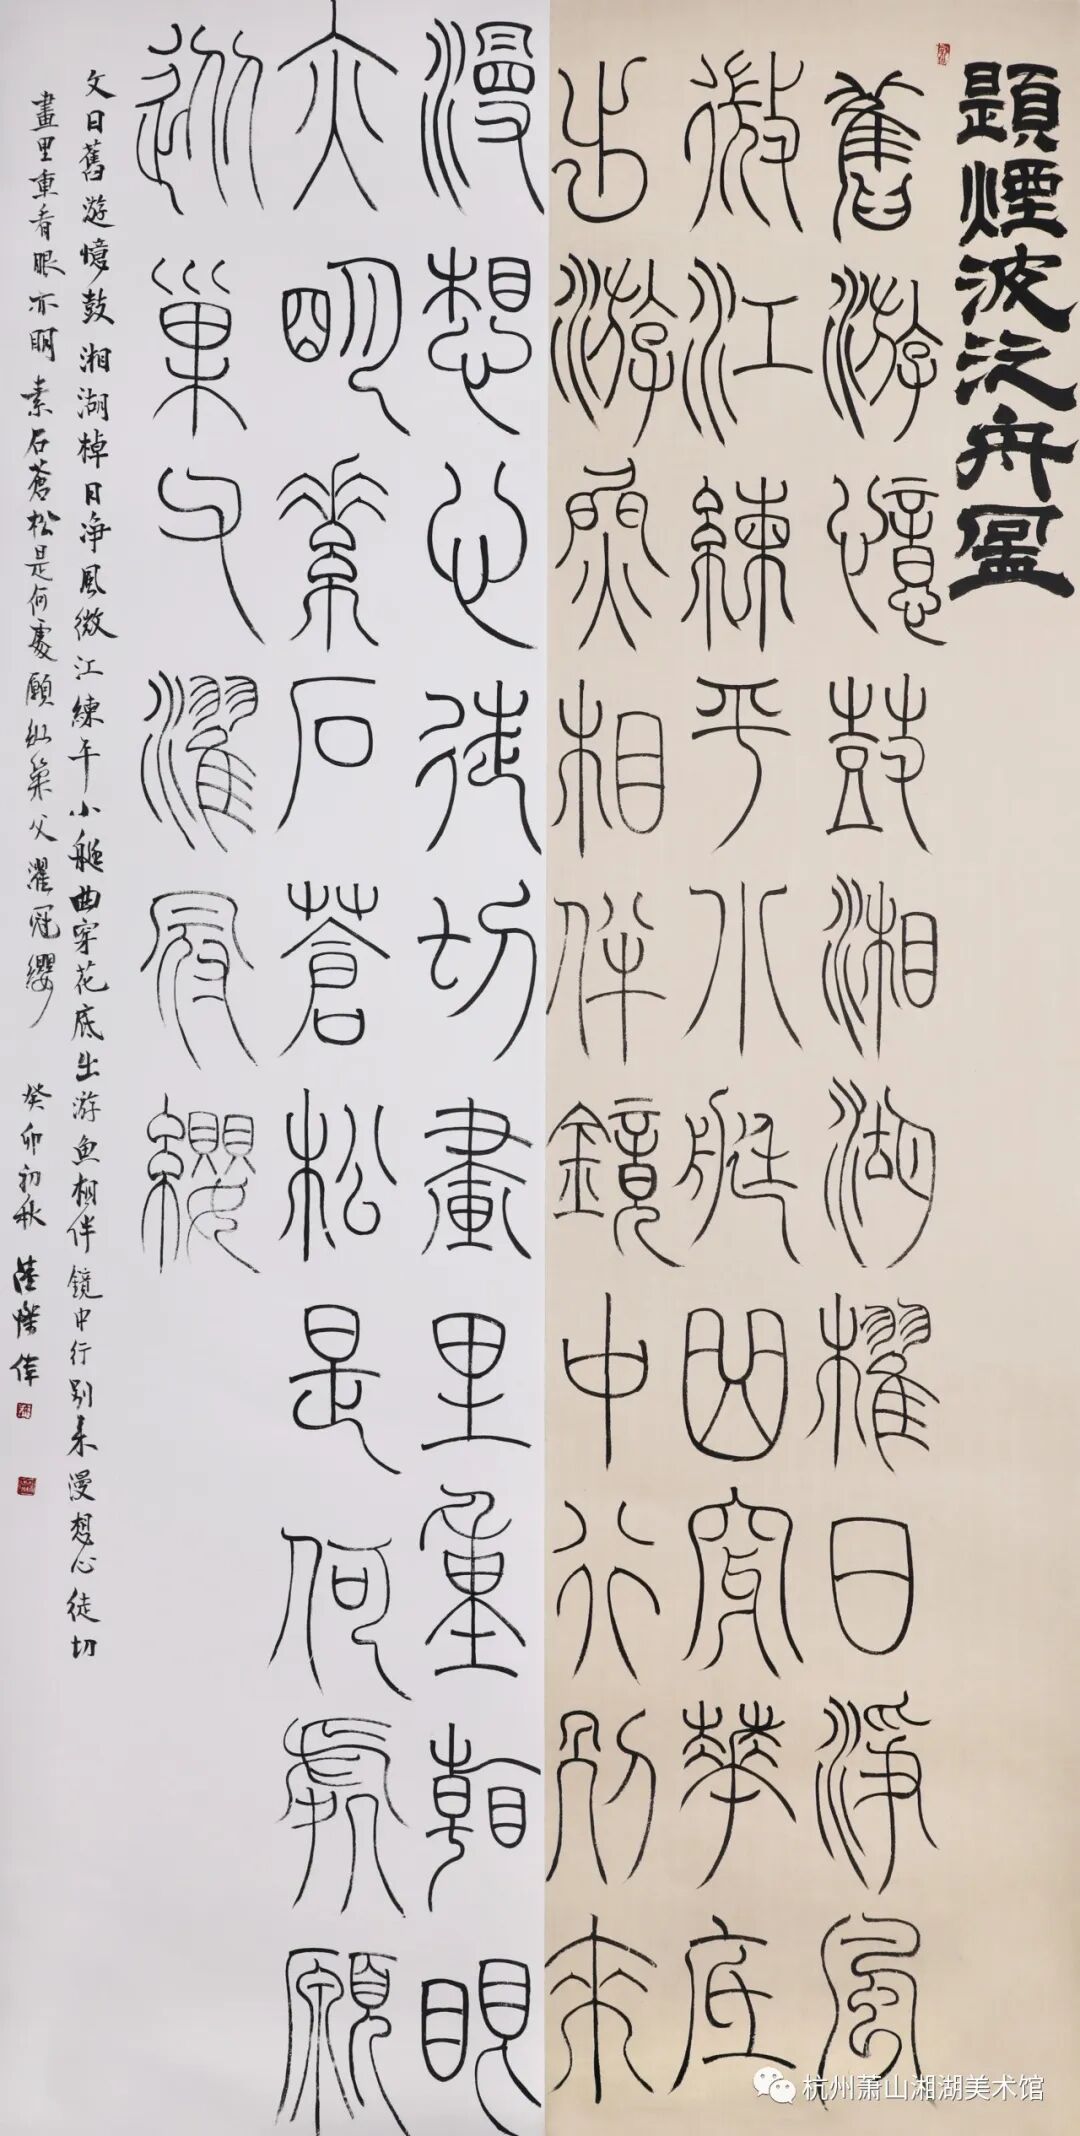 題煙波泛舟圖
舊游憶鼓湘湖櫂日淨風
微江練平小艇曲穿華底
出游魚相伴鏡中行別來
漫想心徒切畫里重看眼
亦明素石蒼松是何處願
從巢父濯冠纓
文曰舊遊憶鼓湘湖棹日淨風微江練平小艇曲穿花底出游魚相伴鏡中行別來漫想心徒切
畫里重看眼亦明素石蒼松是何處願從巢父濯冠纓 癸卯初秋 陸偉
杭州萧山湘湖美术馆